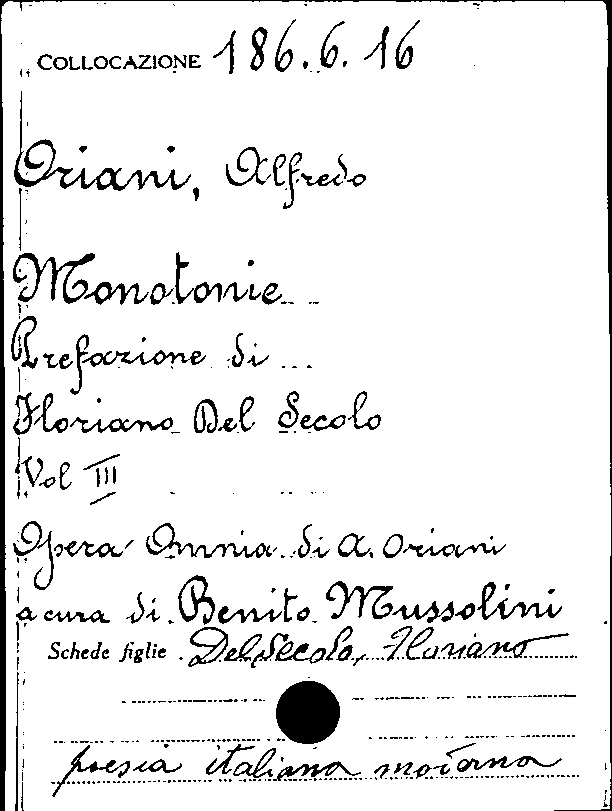 COLLOCAZIONE 186.6.16
Oriani, Alfredo
Monotonie
Prefazione di
Floriano Del Secolo
Vol III
Opera Omnia di A. Oriani
a cura di Benito Mussolini
Schede figlie Del Secolo, Floriano
poesia italiana moderna